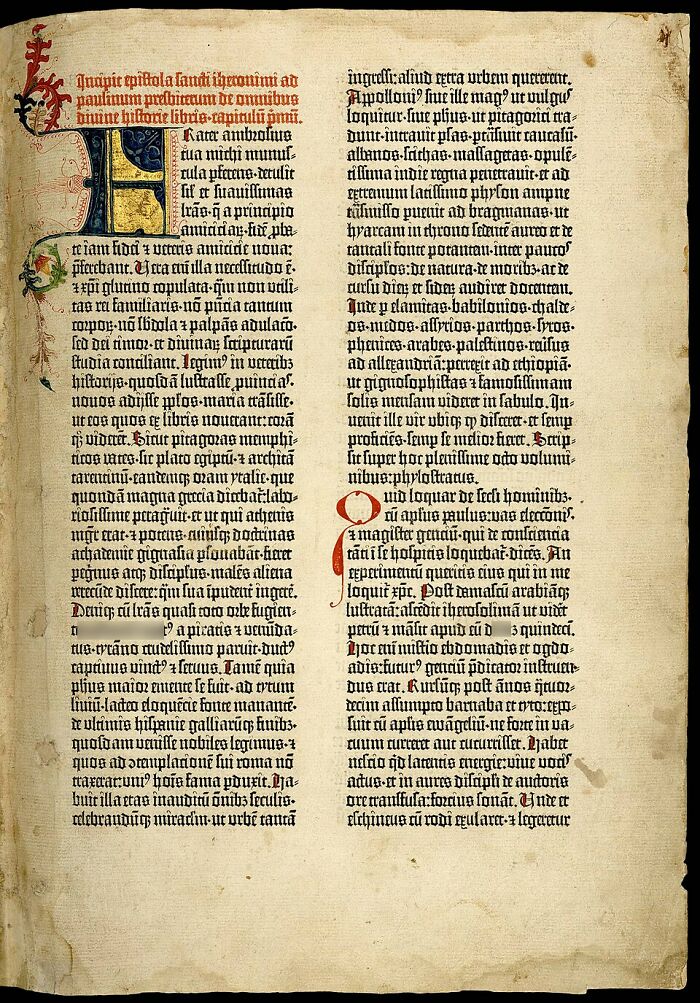 Incipit epistola sancti iheronimi ad
paulinum presbiterum de omnibus
divine historie libris·capitulū p̄mū.
Frater ambrosius
tua michi munus-
cula ꝑferens·detulit
sil̄ et suavissimas
lr̄as·q̄ a principio
amiciciaꝝ·fidē ꝓba-
te iam fidei ⁊ veteris amicicie nova:
p̄ferebant. Vera eni illa necessitudo ē·
⁊ xp̄i glutino copulata·q̄m non utili-
tas rei familiaris·nō pn̄cia tantum
corpoꝝ·nō sb̄dola ⁊ palpās adulacō·
sed dei timor·et divinaꝝ scripturarū
studia conciliant. Legimꝰ in veteribꝫ
historijs·quosdā lustrasse ꝓuincias·
novos adijsse ppl̄os·maria trāsisse·
ut eos quos ex libris noverant: corā
qꝫ viderēt. Sicut pitagoras memphi-
ticos vates·sic plato egiptū·⁊ architā
tarentinū·eandemqꝫ oram ytalie·que
quondā magna grecia dicebat̄: labo-
riosissime peragͥuit·et ut qui athenis
mgr̄ erat·⁊ potens·cuiusqꝫ doctrinas
achademie gignasia ꝑsonabāt·fieret
peg̍nus atqꝫ discipl̄us·malēs aliena
verecūde discere: q̄m sua īpudent̄ ingerē.
Deniqꝫ cū lr̄as quasi toto orbe fugien-
a piratis ⁊ venūda-
tus·tyrāno crudelissimo paruit·ductꝰ
captivus vinctꝰ ⁊ servus. Tamē quia
ph̄us maior emente se fuit·ad tytum
liviū·lacteo eloquēcie fonte manantē·
de ultimis hispanie galliarūqꝫ finibꝫ·
quosdam venisse nobiles legimus·⁊
quos ad ↄtemplacionē sui roma nō
traxerat: unīꝰ hoīs fama ꝑduxit. Ha-
buit illa etas inauditū oīnibꝫ seculis·
celebrandūqꝫ miraclm̄·ut urbē tantā
ingressi: aliud extra urbem quererent.
Appollonīꝰ sive ille magꝰ ut vulgꝰ
loquitur·sive ph̄us·ut pitagorici tra-
dunt·intravit ꝑsas·pt̄rāsivit caucasū·
albanos·scithas·massagetas·opulē-
tissima indie regna penetravit·et ad
extremum latissimo physon ampne
trāsmisso ꝑvenit ad bragmanas·ut
hyarcam in throno sedentē aureo et de
tantali fonte potantem·inter paucos
discipl̄os: de natura·de moribꝫ·ac de
cursu dieꝝ et sideꝝ audiret docentem.
Inde ꝑ elamitas·babilonios·chalde-
os·medos·assyrios·parthos·syros·
phenices·arabes·palestinos·reversus
ad allexandriā: perrexit ad ethiopiā·
ut gignosophistas ⁊ famosissimam
solis mensam videret in sabulo. In-
venit ille vir ubiqꝫ qd̄ disceret·et semꝑ
proficiēs·semꝑ se melior fieret. Scrip-
sit super hoc plenissime octo volumi-
nibus: phylostratus.
Quid loquar de seculi hominibꝫ·
cū apl̄us paulus: vas electōnis·
⁊ magister gentiū·qui de consciencia
tāti ī se hospitis loquebat̄: dicēs. An
experimentū queritis eius qui in me
loquit̄ xp̄c. Post damascū arabiāqꝫ
lustratā: ascēdit iherosolimā ut vidēt
petrū ⁊ māsit apud eū quindeci.
Hoc eni misterio ebdomadis et ogdo-
adis: futurꝰ genciū p̄dicator instruen-
dus erat. Rursūqꝫ post ānos q̄tuor-
decim assumpto barnaba et tyto: expo-
suit cū aplis ewāgeliū·ne forte in va-
cuum curreret aut cucurrisset. Habet
nescio qd̄ latentis energie: vive vocis
actus·et in aures discipl̄i de auctoris
ore transfusa: forcius sonāt. Unde et
eschineus cū rodi exularet·⁊ legeretur